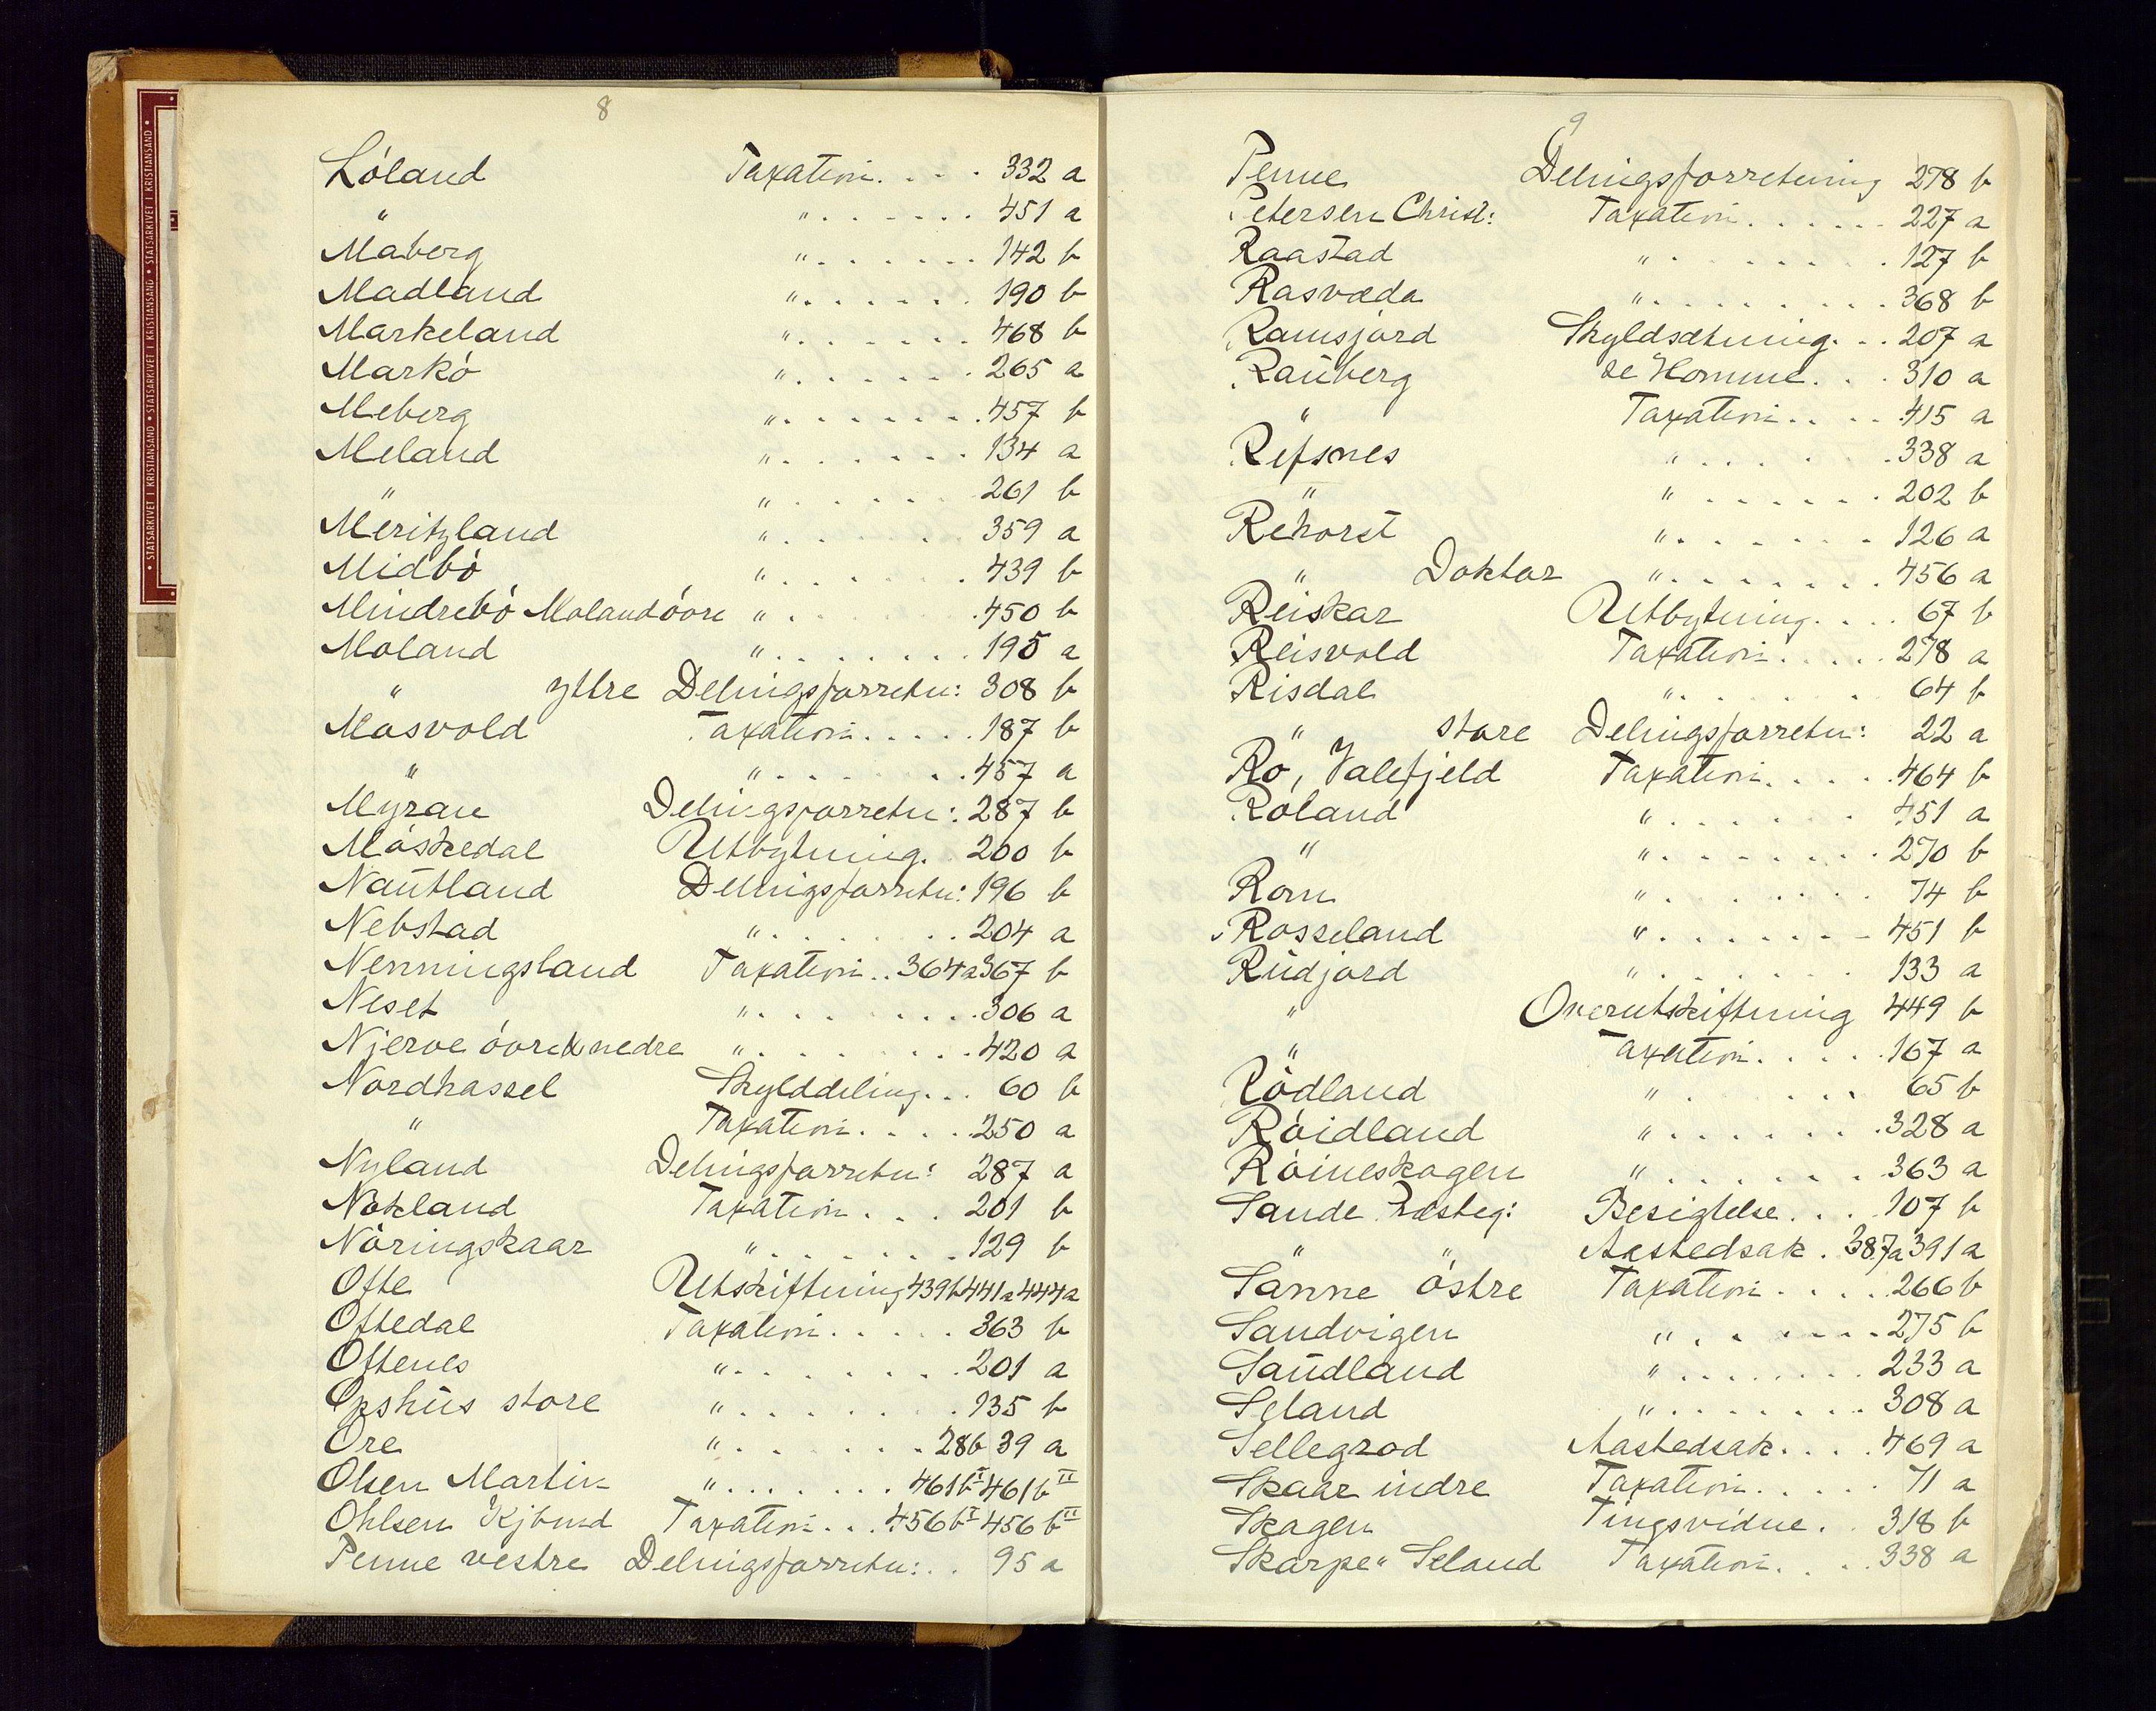 • STATSARKIVET I KRISTIANSAND • STATSARKIVET I KRISTIANSAND • STATSARKIVET I KRISTIANSAND •
8
Löland Taxation. . . . 332 a
" " . . . . . . 451 a
Maberg " . . . . . . 142 b
Madland " . . . . . . 190 b
Markeland " . . . . . . 468 b
Markö " . . . . . . 265 a
Meberg " . . . . . . 457 b
Meland " . . . . . . 134 a
" " . . . . . . 261 b
Meritzland " . . . . . . 359 a
Midbö " . . . . . . 439 b
Mindrebö Molandövre " . . . . . . 450 b
Moland " . . . . . . 195 a
" yttre Delingsforretn: 308 b
Mosvold Taxation. . . . . 187 b
" " . . . . . . 457 a
Myran Delingsforretn: 287 b
Möskedal Utbytning. . 200 b
Nautland Delingsforretn: 196 b
Nebstad " . . . . . . 204 a
Nenningsland Taxation. . 364a 367 b
Neset " . . . . . . 306 a
Njerve övre & nedre " . . . . . . 420 a
Nordhassel Skylddeling. . . 60 b
" Taxation. . . . 250 a
Nyland Delingsforretn: 287 a
Nökland Taxation. . . 201 b
Nöringskaar " . . . . . . 129 b
Ofte Utskiftning 439b 441a 444a
Oftedal Taxation. . . . . 363 b
Oftenes " . . . . . . 201 a
Opshus store " . . . . . . 135 b
Ore " . . . . . . 28b 39 a
Olsen Martin " . . . . . . 461b I 461b II
Ohlsen Taxation. . . 456b I 456b II
Penne vestre Delingsforretn: . . 95 a
9
Penne Delingsforretning 278 b
Petersen Christ: Taxation. . . . . . 227 a
Raastad " . . . . . . 127 b
Rasvæda " . . . . . . 368 b
Ramsjord Skyldsætning. . . 207 a
Rauberg se Homme. . . 310 a
" Taxation. . . . 415 a
Refsnes " . . . . . . 338 a
" " . . . . . . 202 b
Rehorst " . . . . . . 126 a
" Doktor " . . . . . . 456 a
Reiskar Utbytning. . . . 67 b
Reisvold Taxation. . . . . 278 a
Risdal " . . . . . . 64 b
" store Delingsforretn: 22 a
Ro, Valefjeld Taxation. . . . . 464 b
Roland " . . . . . . 451 a
" " . . . . . . 270 b
Rom " . . . . . . 74 b
Rosseland " . . . . . . 451 b
Rudjord " . . . . . . 133 a
" Overutskiftning 449 b
" Taxation. . . . . 167 a
Rödland " . . . . . . 65 b
Röidland " . . . . . . 328 a
Röineskogen " . . . . . . 363 a
Sande Præsteg: Besigtelse. . . 107 b
" " Aastedsak . 387a 391a
Sanne östre Taxation. . . . . 266 b
Sandvigen " . . . . . . 275 b
Saudland " . . . . . . 233 a
Seland " . . . . . . 308 a
Sellegrod Aastedsak. . . . 469 a
Skaar indre Taxation. . . . . 71 a
Skagen Tingsvidne. . 318 b
Skarpe" Seland Taxation. . . . 338 a